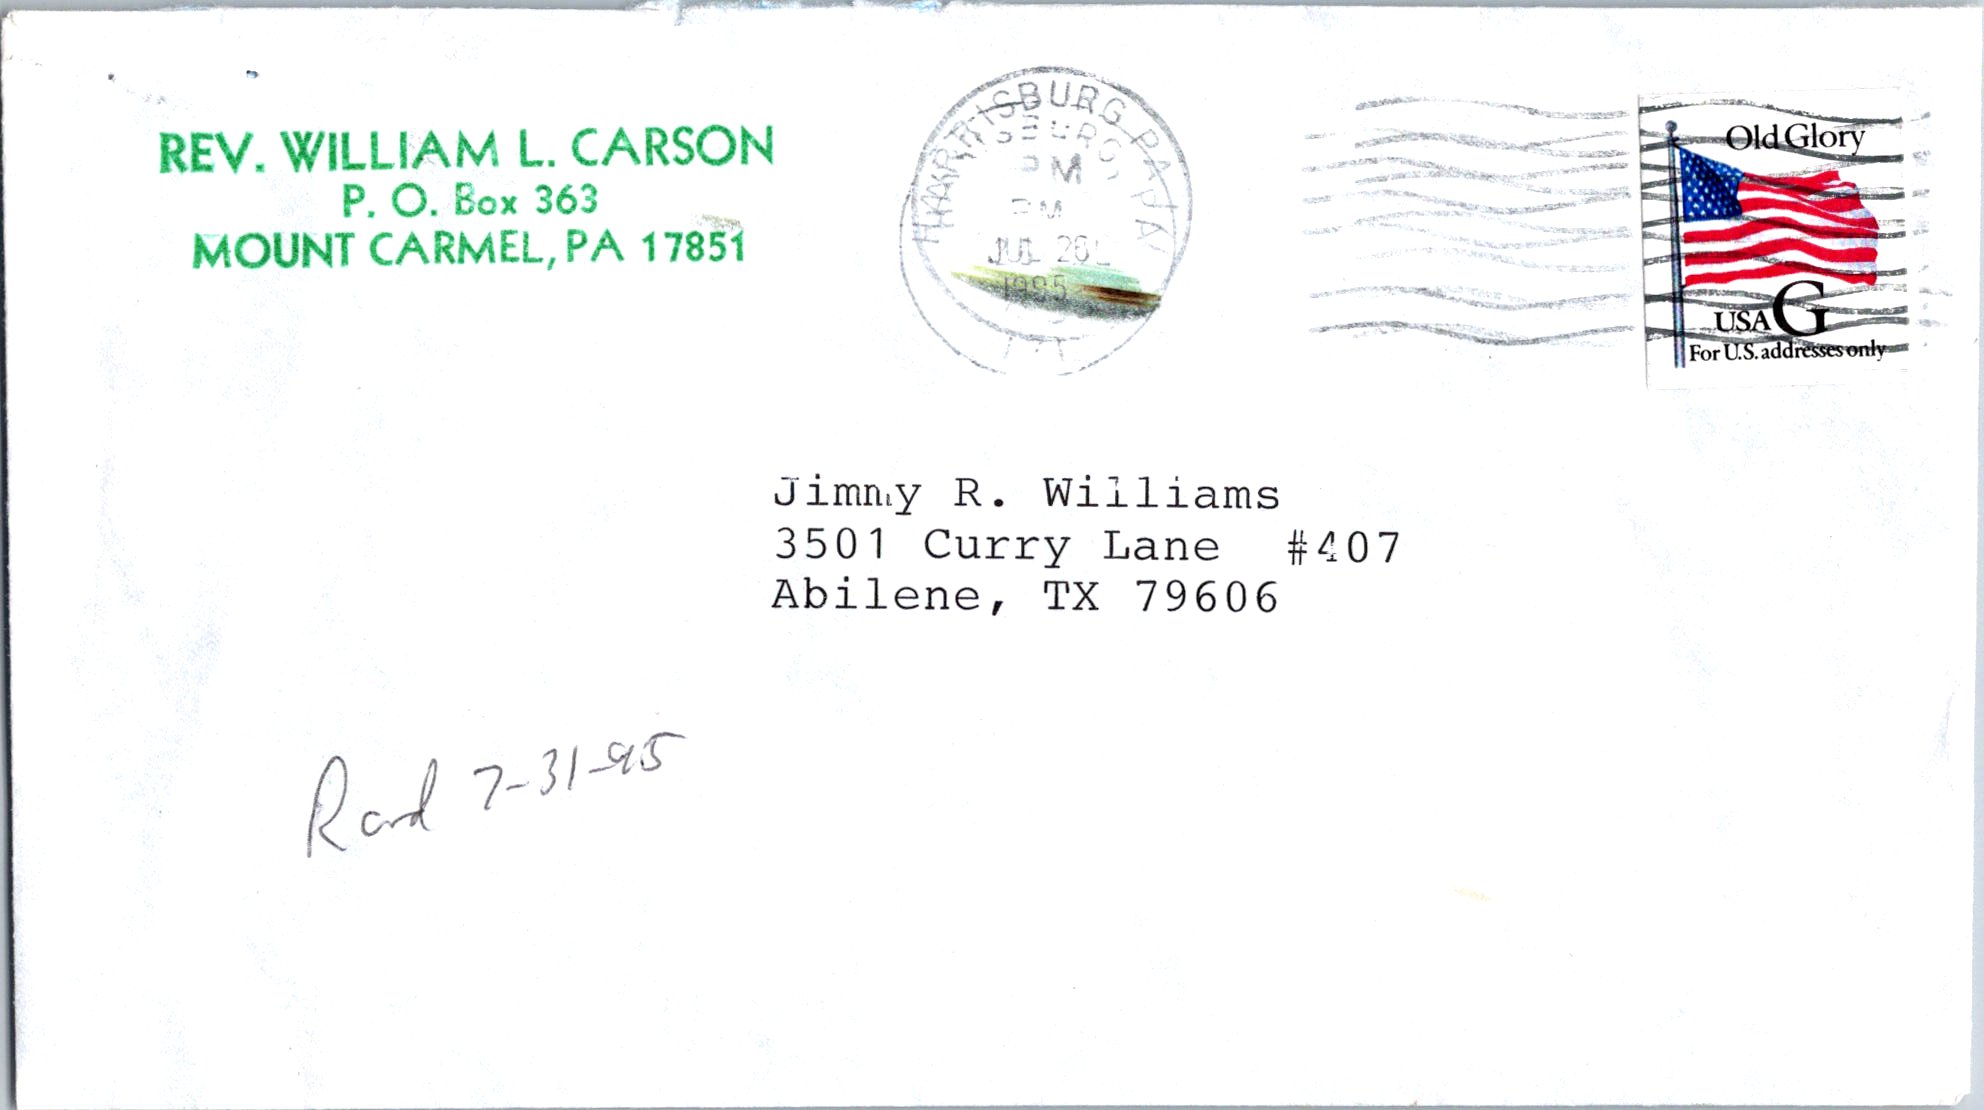 REV. WILLIAM L. CARSON
P. O. Box 363
MOUNT CARMEL, PA 17851
HARRISBURG PA
PM
JUL 28
1995
Old Glory
USA G
For U.S. addresses only
Jimmy R. Williams
3501 Curry Lane #407
Abilene, TX 79606
Rcvd 7-31-95